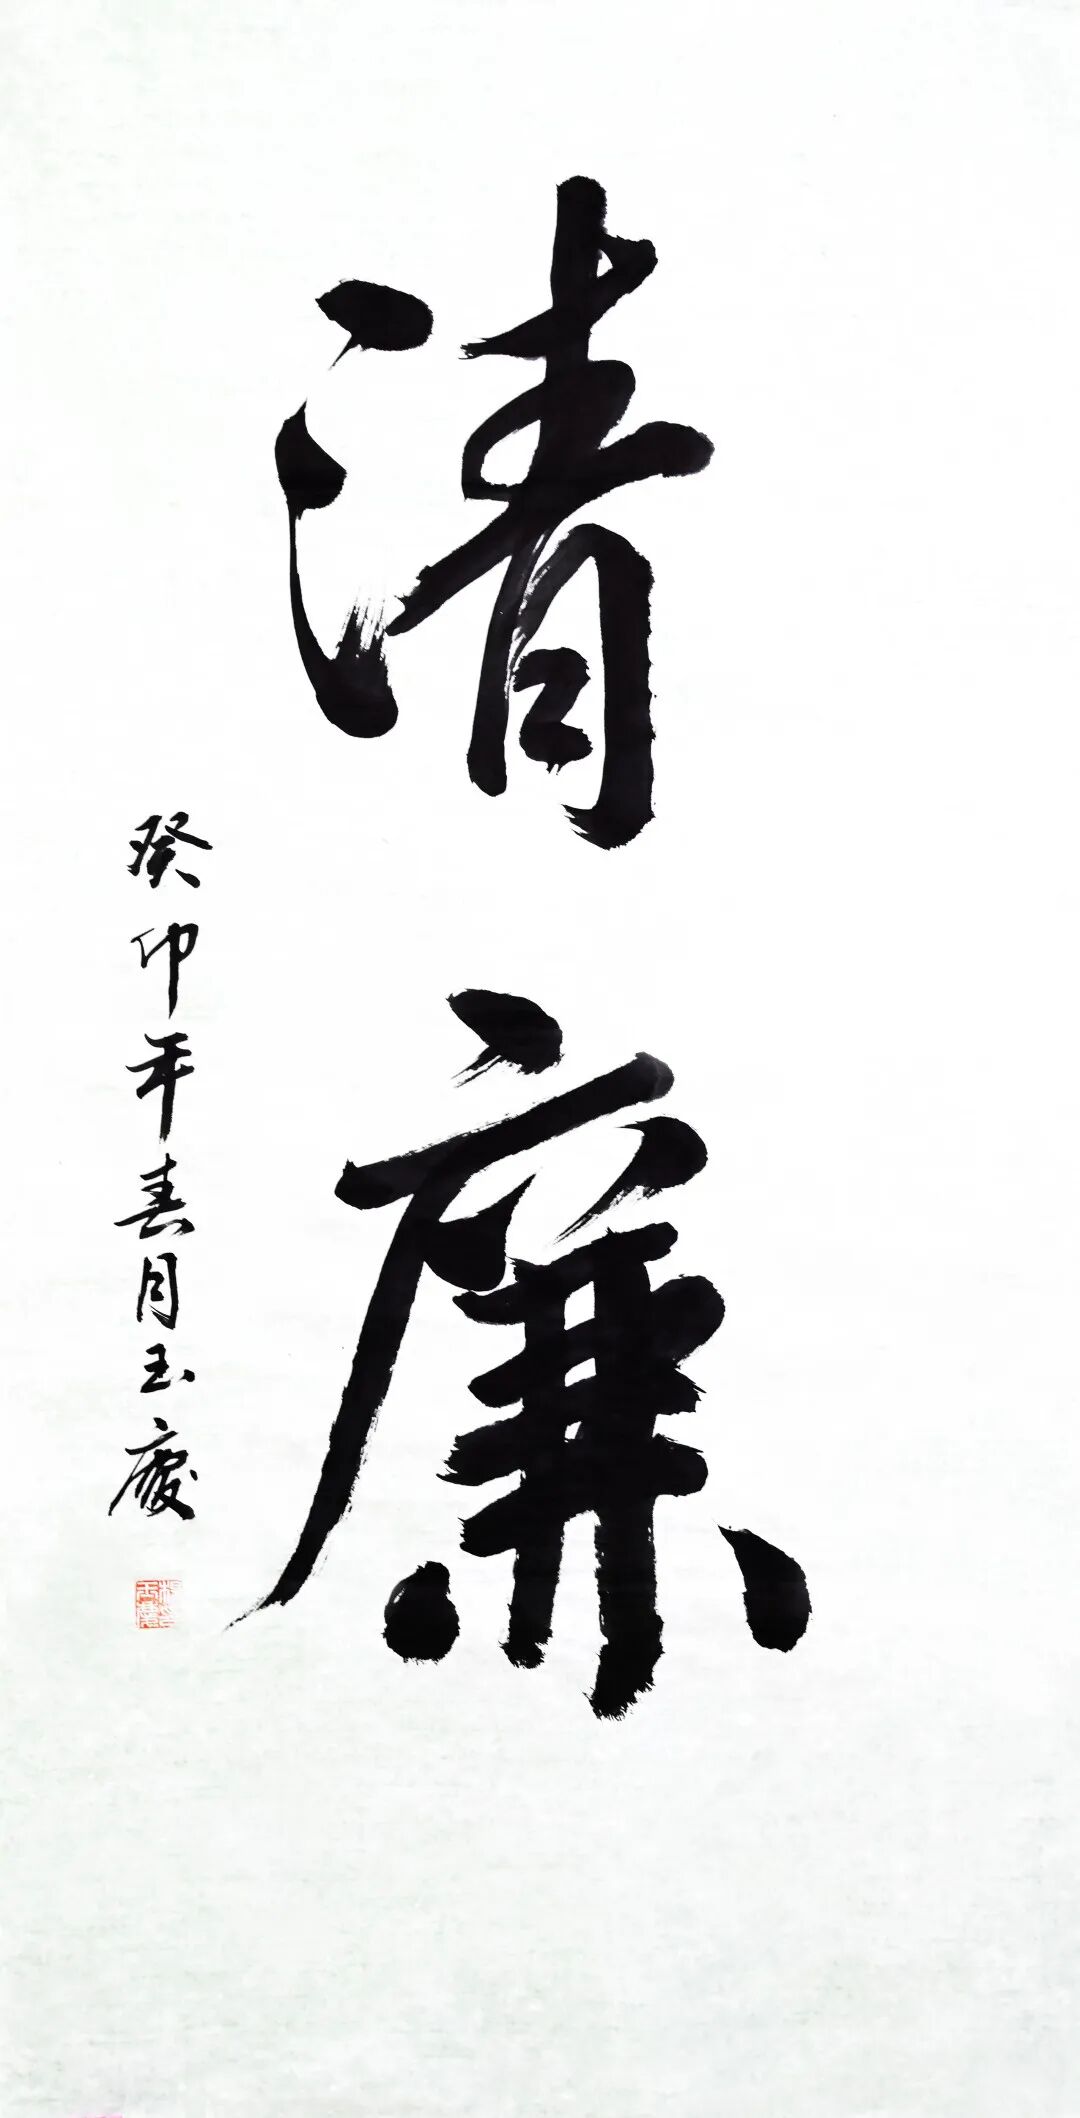 清廉
癸卯年春月玉慶